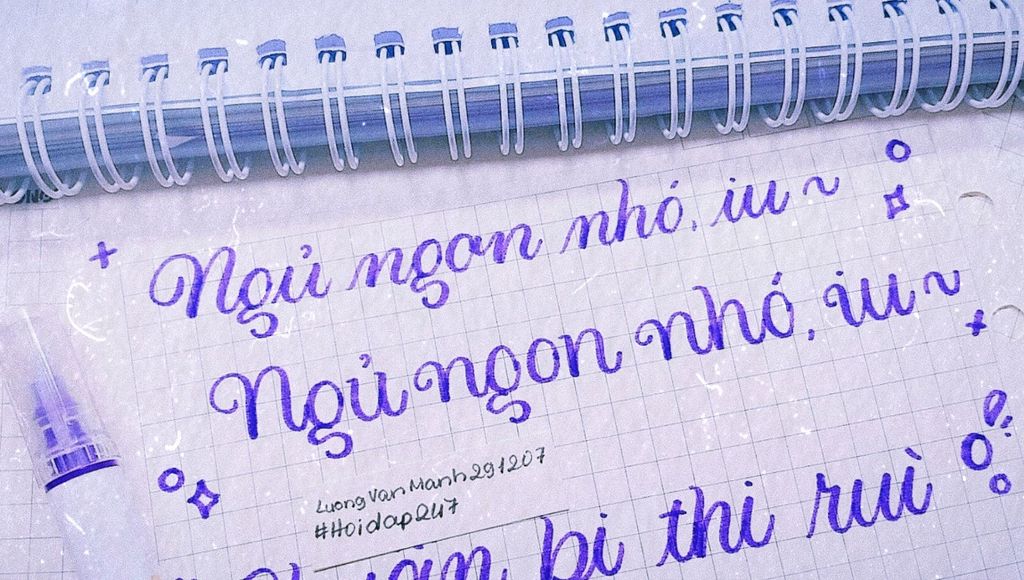 Ngủ ngon nhó, iu ~
Ngủ ngon nhó, iu ~
LuongVanManh291207
#Hoidap247
bị thi rùi